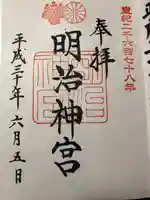 皇紀二千六百七十八年
奉拝
明治神宮
平成三十年六月五日